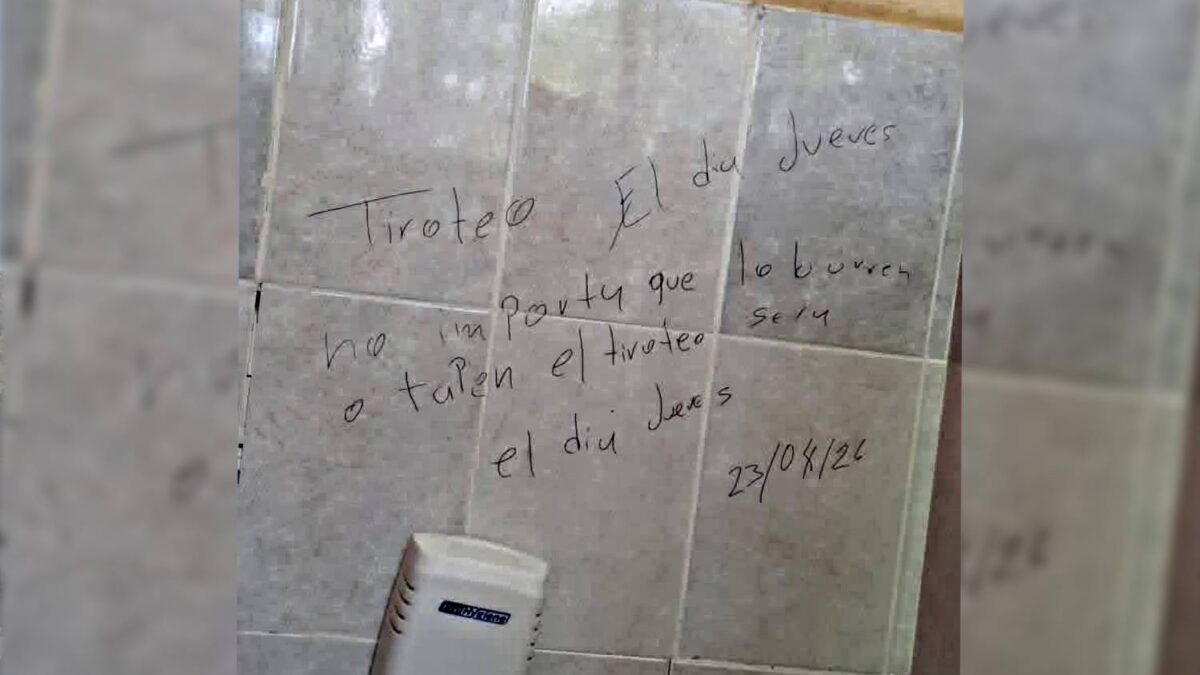 Tiroteo El dia Jueves
no importa que lo borren
o tapen el tiroteo sera
el dia Jueves
23/04/26